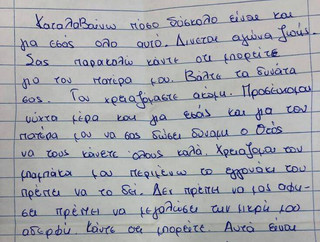 Καταλαβαίνω πόσο δύσκολο είναι και
για εσάς όλο αυτό. Δίνεται αγώνα ζωής.
Σας παρακαλώ κάντε ότι μπορείτε
για τον πατέρα μου. Βάλτε τα δυνατά
σας. Τον χρειαζόμαστε ακόμη. Προσεύχομαι
νύχτα μέρα και για εσάς και για τον
πατέρα μου να σας δώσει δύναμη ο Θεός
να τους κάνετε όλους καλά. Χρειάζομαι τον
μπαμπά μου περιμένω το εγγονάκι του
πρέπει να το δεί. Δεν πρέπει να μας αφή-
σει πρέπει να μεγαλώσει την μικρή μου
αδερφή. Κάντε ότι μπορείτε. Αυτά είναι